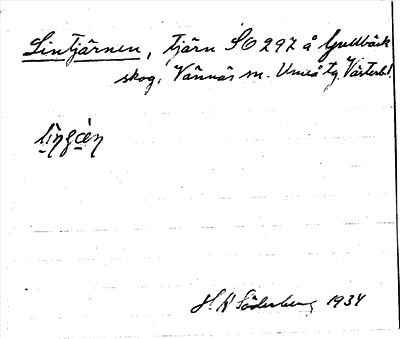 Lintjärnen, tjärn SO 297 å Gullbäck
skog, Vännäs sn. Umeå tg. Västerb.
H. K. Söderberg 1934